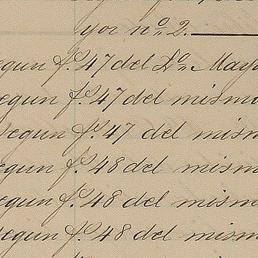 yor nº 2.
egun fº 47 del Lº Mayo
egun fº 47 del mismo
Segun fº 47 del mism
egun fº 48 del mism
egun fº 48 del mism
egun fº 48 del mism